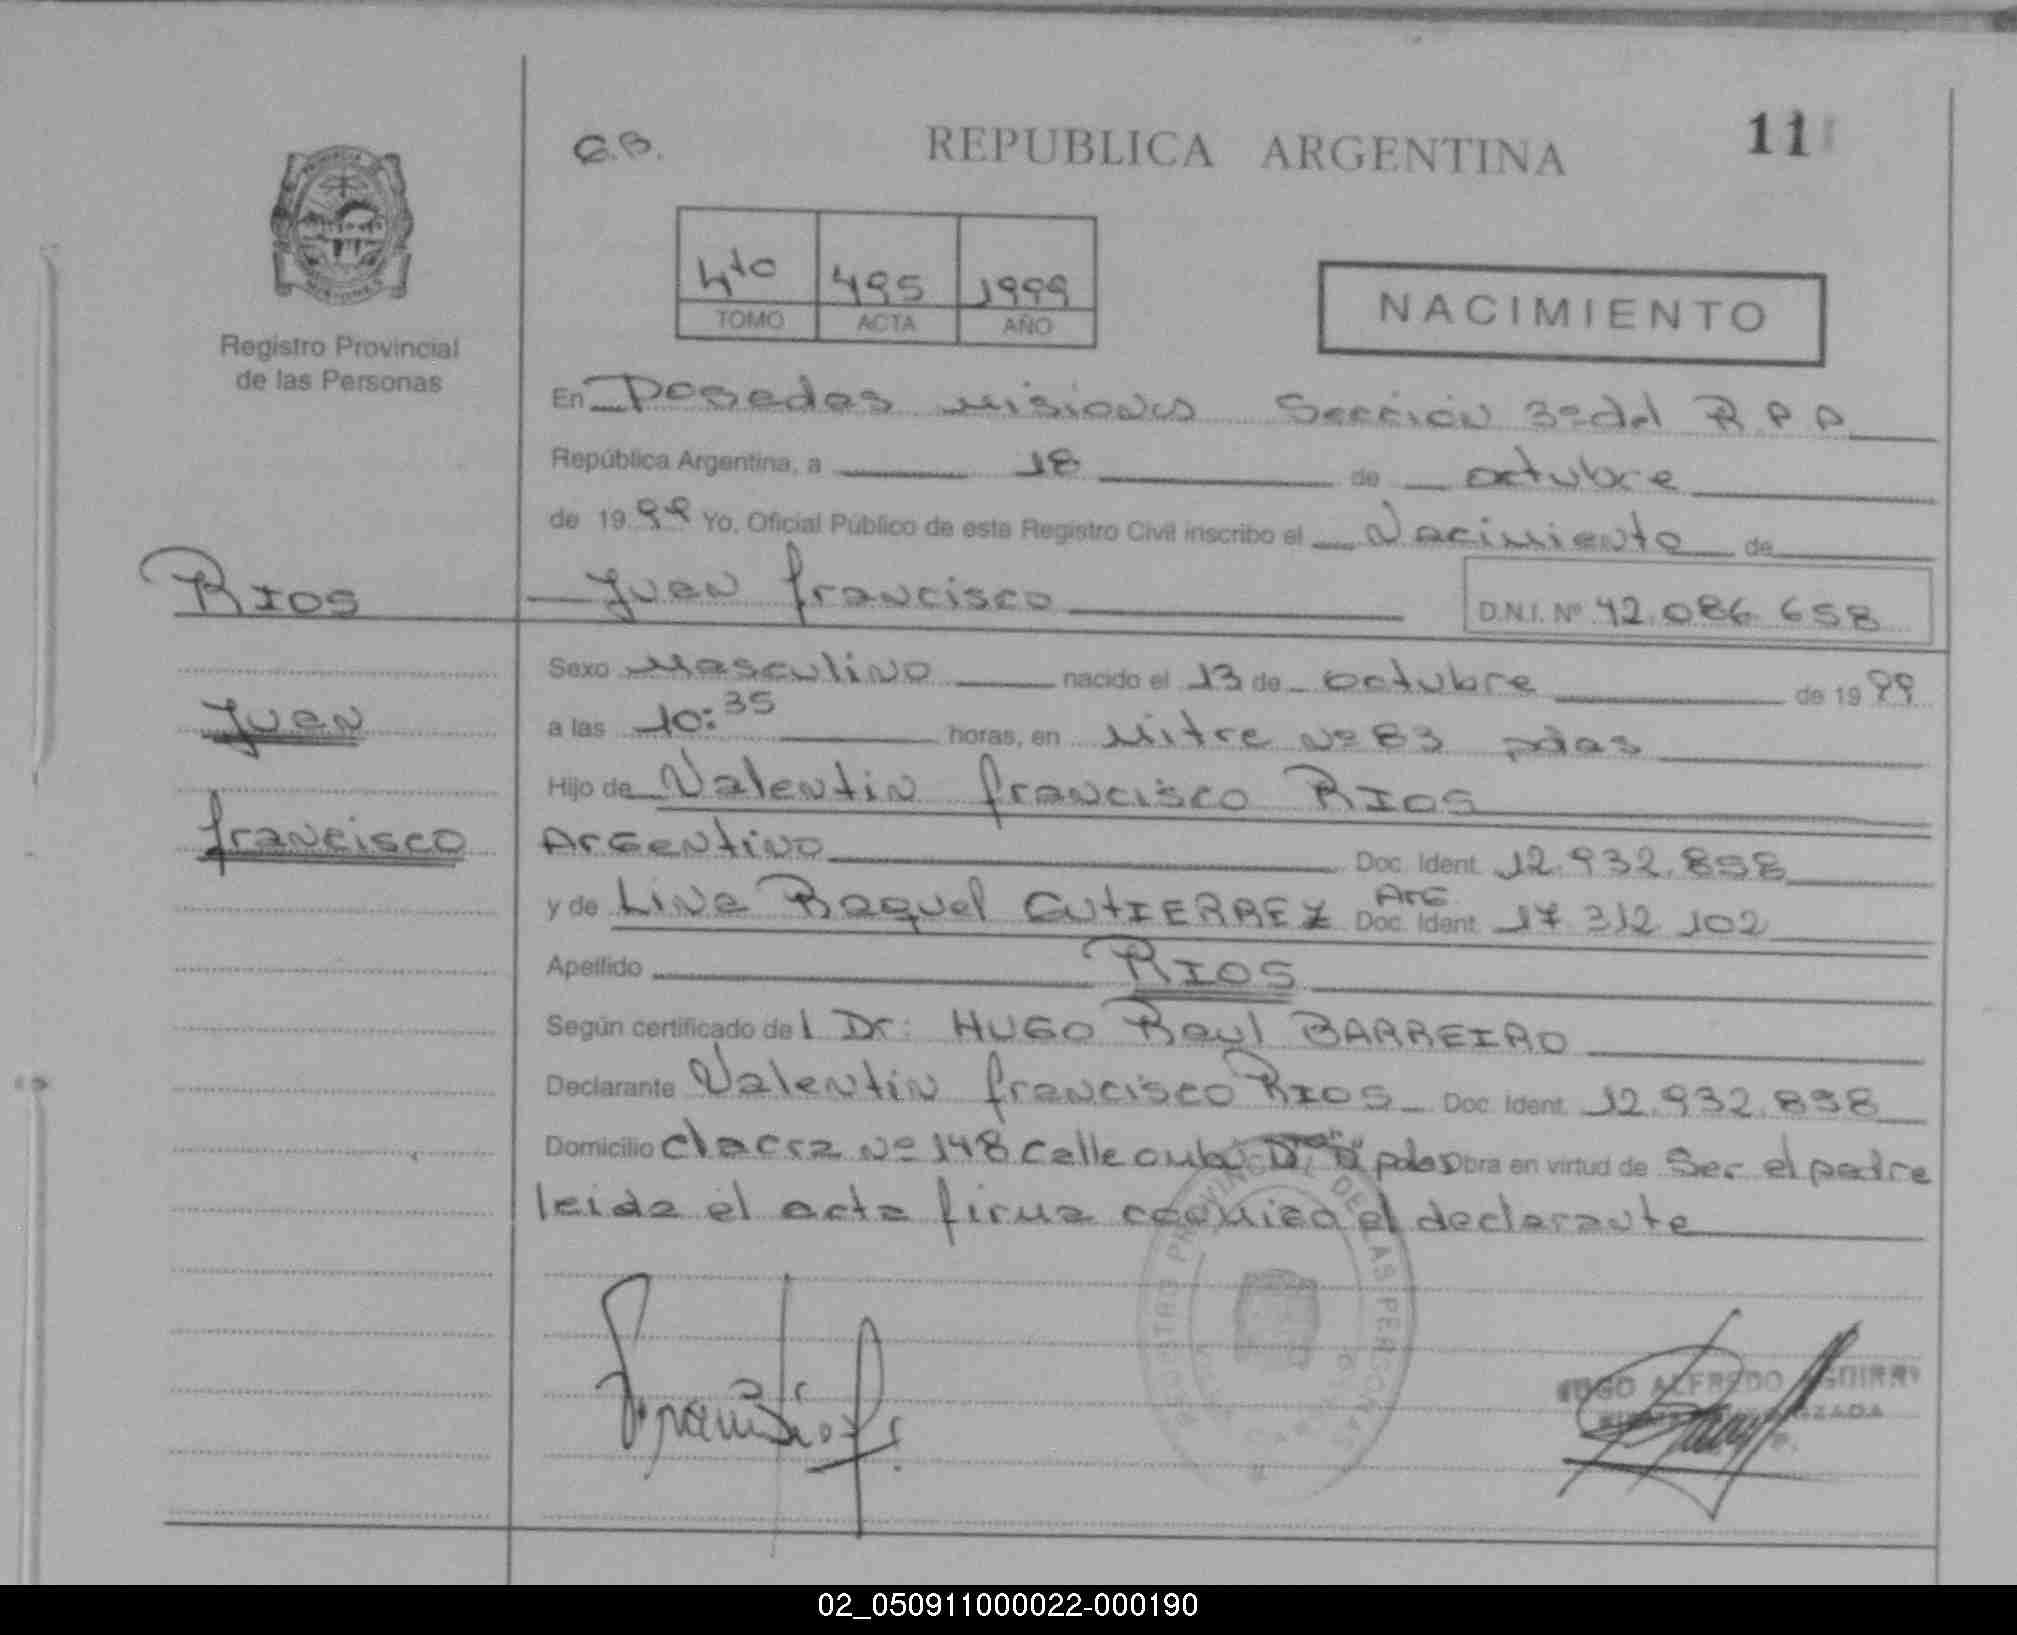 G.B.
REPUBLICA ARGENTINA
11
4to 495 1999
TOMO ACTA AÑO
NACIMIENTO
MISIONES
Registro Provincial
de las Personas
En Posadas Misiones Sección 3º del R P P
República Argentina, a 18 de octubre
de 1999 Yo, Oficial Público de este Registro Civil inscribo el Nacimiento de
RIOS
Juan francisco D.N.I. Nº 42.086.658
Sexo Masculino nacido el 13 de octubre de 1999
Juan
a las 10:35 horas, en Mitre Nº 83 pdas
Hijo de Valentin francisco RIOS
francisco
Argentino Doc. Ident. 12.932.898
y de Lina Raquel GUTIERREZ Arg. Doc. Ident. 17.312.102
Apellido RIOS
Según certificado del Dr: HUGO Raul BARREIRO
Declarante Valentin francisco RIOS Doc. Ident. 12.932.898
Domicilio chacra Nº 148 calle pdas Obra en virtud de Ser el padre
leida el acta firma conmigo el declarante
REGISTRO PROVINCIAL DE LAS PERSONAS
POSADAS
Francisco
HUGO ALFREDO AGUIRRE
02_050911000022-000190